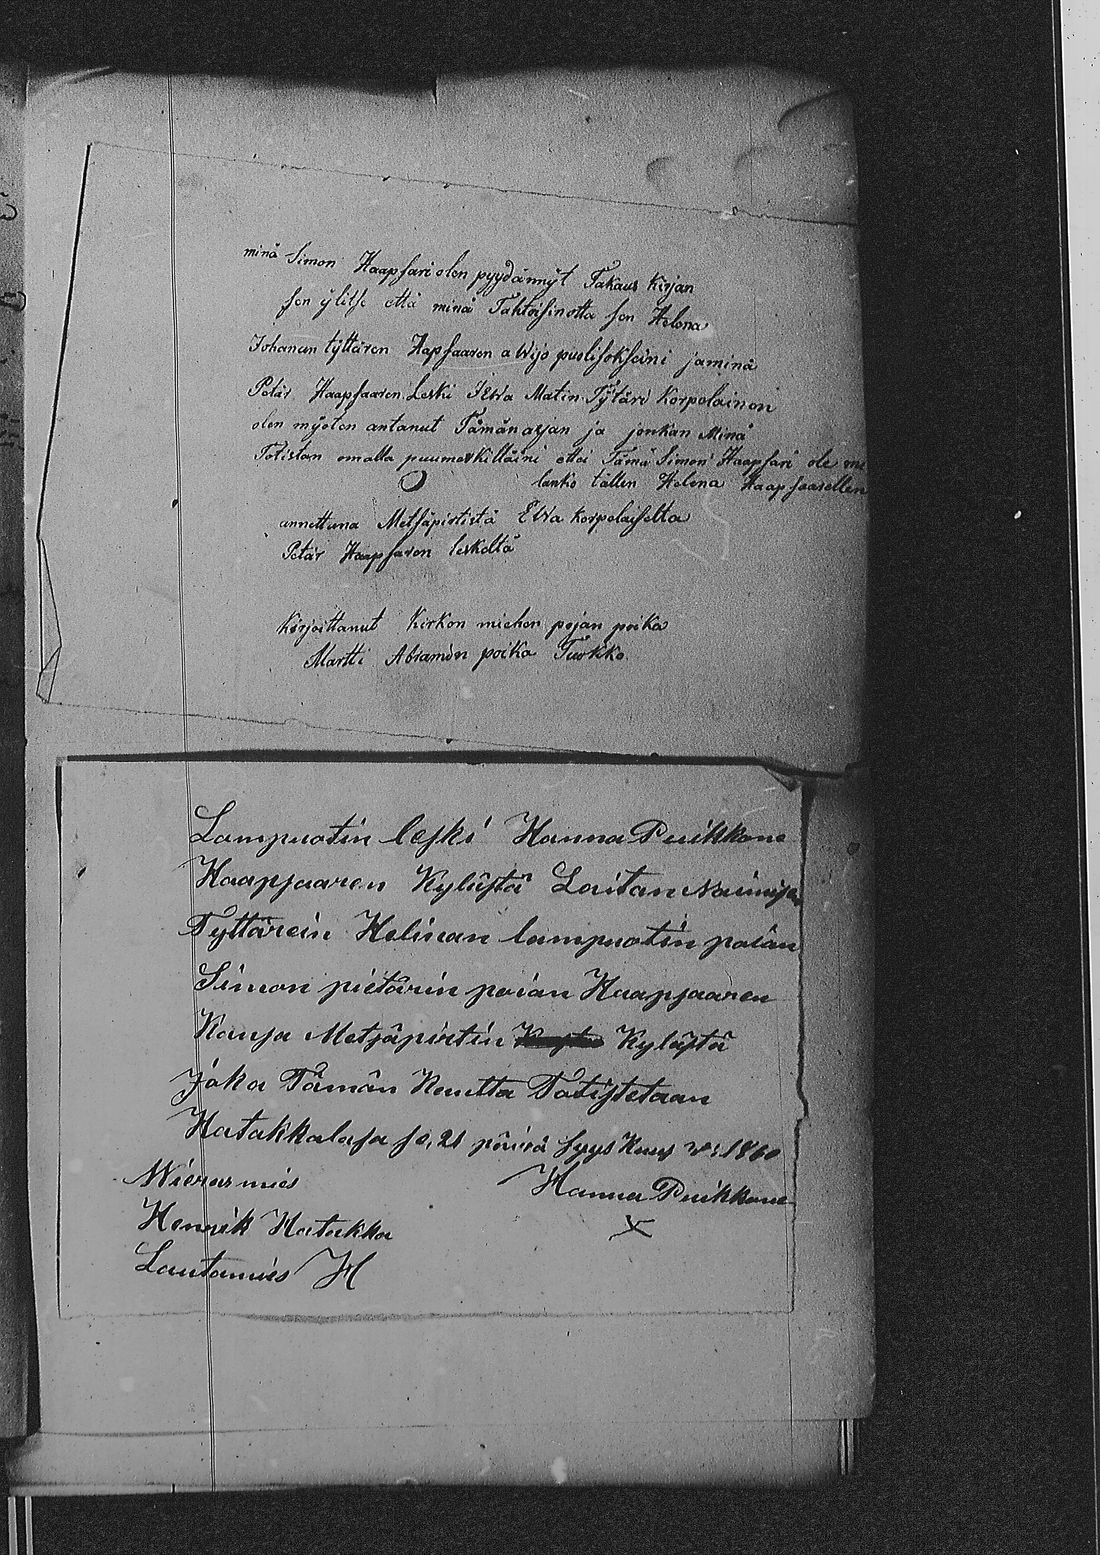 minä Simon Haapsari olen pyydännyt Takaus Kirjan
sen ylitse että minä Tahtoisin otta sen Helena
Johanan tyttären Hapsaaren a Wijo puolisokseini ja minä
Petär Haapsaaren Leski J Ewa Matin Tytäri Korpelainen
olen myöten antanut Tämän asjan ja jonkan Minä
Totistan omalla puumerkilläini että Tämä Simon Haapsari ole mi
lanko tällen Helena Haapsaarellen
annettuna Metsäpirtistä Ewa Korpelaiselta
Petär Haapsaren leskeltä
kirjoittanut Kirkon miehen pojan poika
Martti Abramin poika Turkko.
Lampuotin leski Hanna Puikkone
Haapsaaren Kylästä Laitan Naimisen
Tyttärein Helinan lampuotin poian
Simon pietärin poian Haapsaaren
Kansa Metsäpirtin Kylästä
joka Tämän Kautta Totistetaan
Hatakkalasa se, 21 päivä Syys Kuus w: 1860
Wierasmies Hanna Puikkone
Henrik Hatakka X
Lautamies H